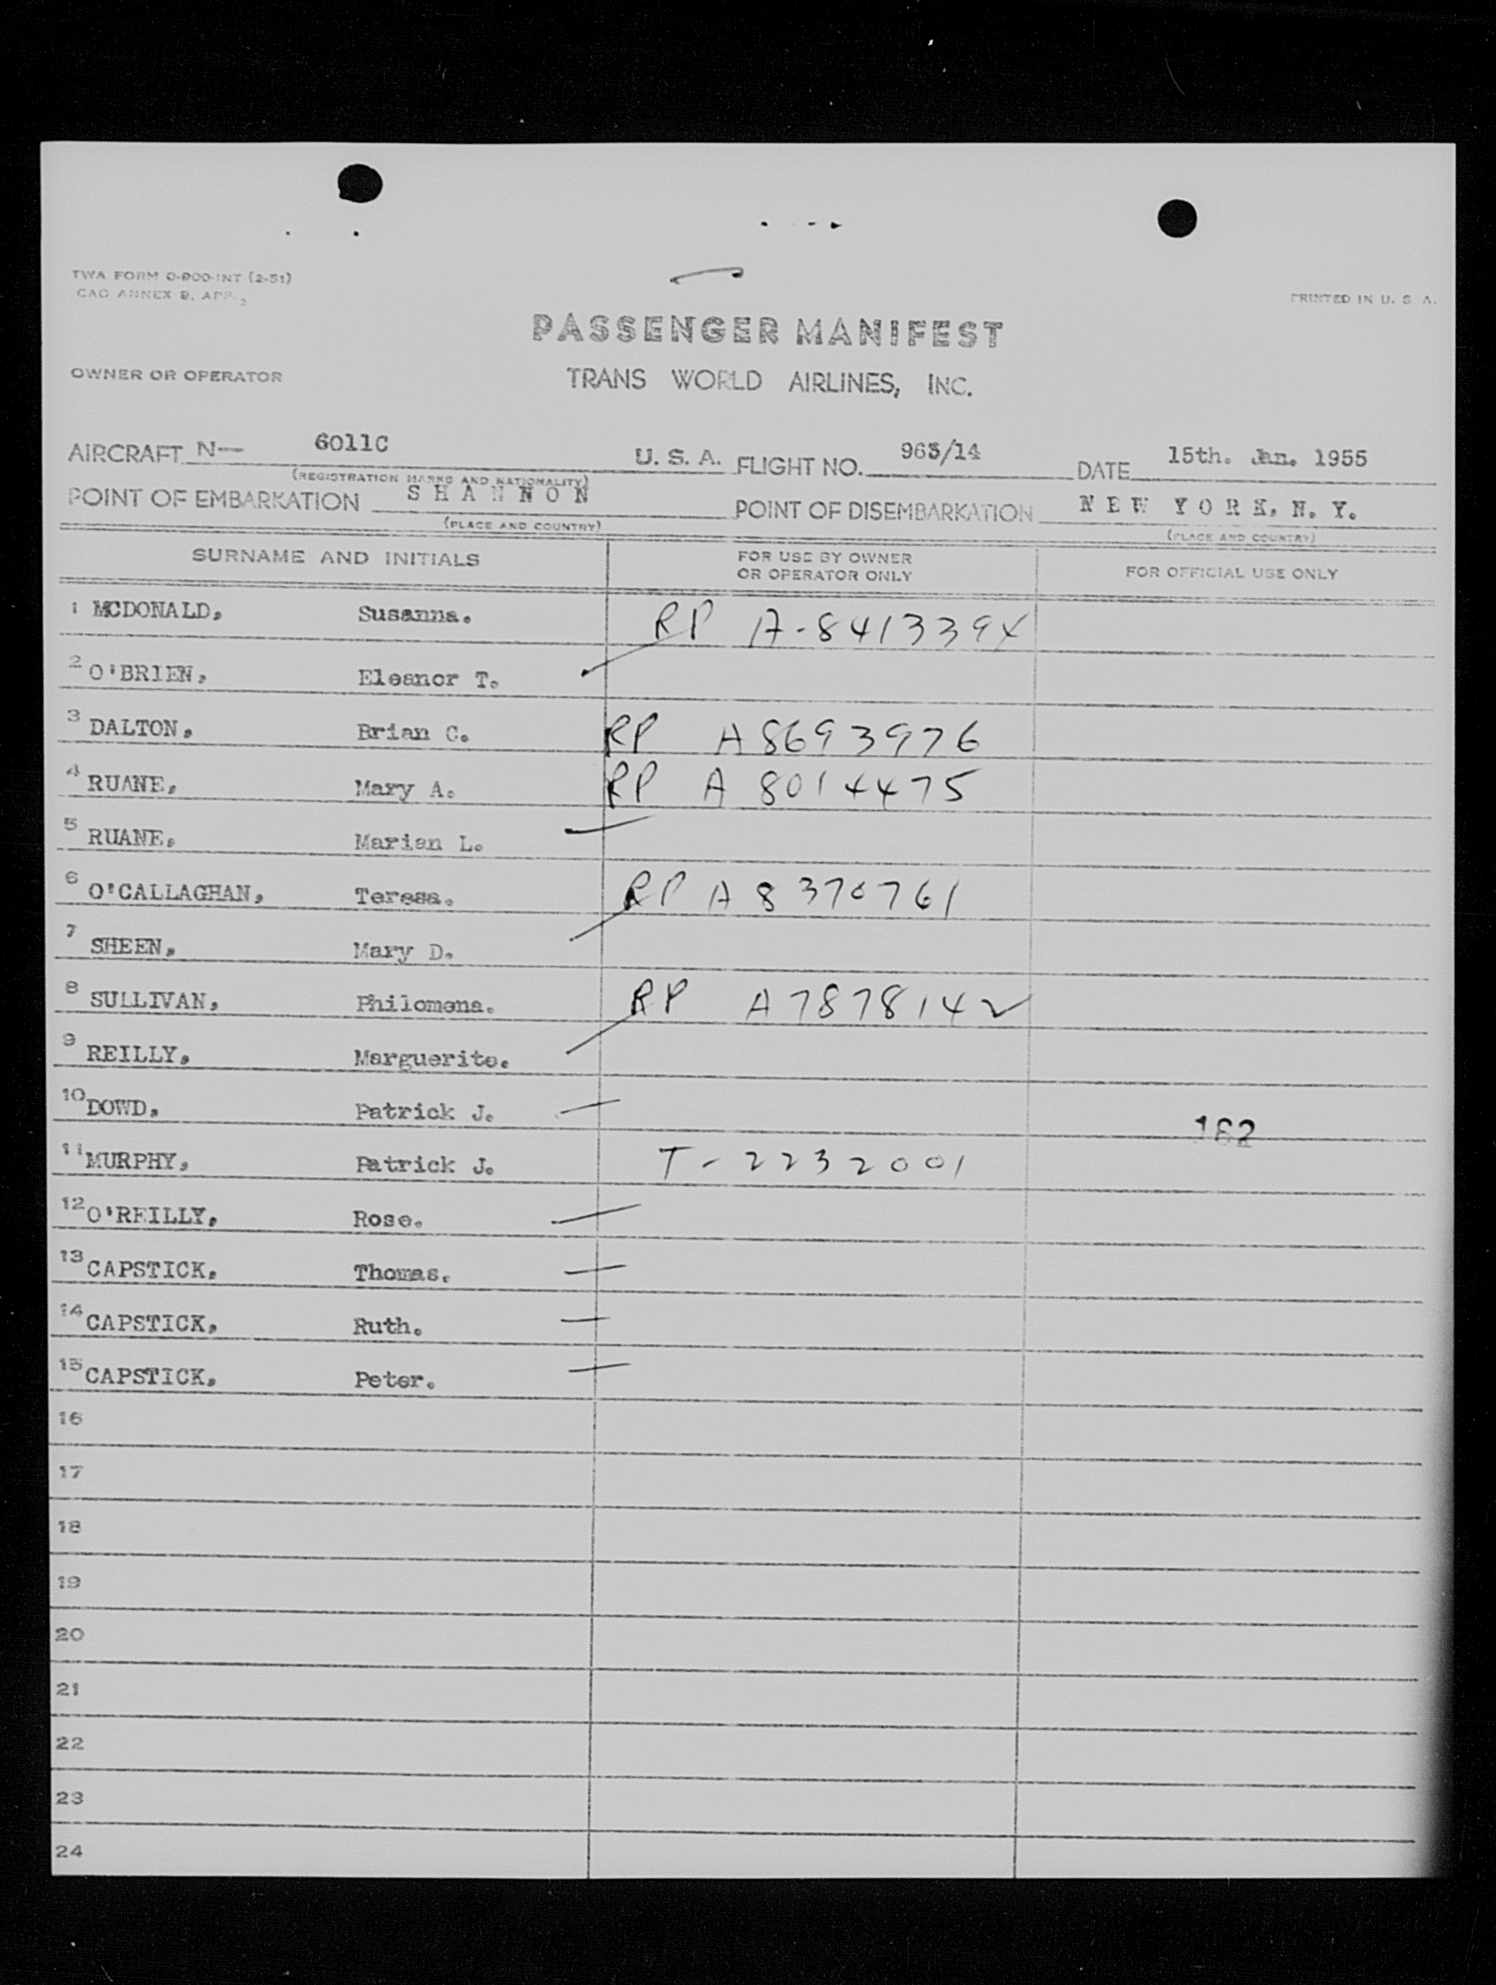 TWA FORM O-900-INT (2-51)
PRINTED IN U. S. A.
PASSENGER MANIFEST
OWNER OR OPERATOR TRANS WORLD AIRLINES, INC.
AIRCRAFT N— 6011C U. S. A. FLIGHT NO. 963/14 DATE 15th. Jan. 1955
(REGISTRATION MARKS AND NATIONALITY)
POINT OF EMBARKATION S H A N N O N POINT OF DISEMBARKATION N E W Y O R K, N. Y.
(PLACE AND COUNTRY) (PLACE AND COUNTRY)
SURNAME AND INITIALS FOR USE BY OWNER OR OPERATOR ONLY FOR OFFICIAL USE ONLY
1 MCDONALD, Susanna. RP A-8413394
2 O'BRIEN, Eleanor T.
3 DALTON, Brian C. RP A8693976
4 RUANE, Mary A. RP A 8014475
5 RUANE, Marian L.
6 O'CALLAGHAN, Teresa. RP A 8370761
7 SHEEN, Mary D.
8 SULLIVAN, Philomena. RP A7878142
9 REILLY, Marguerite.
10 DOWD, Patrick J.
162
11 MURPHY, Patrick J. T-2232001
12 O'REILLY, Rose.
13 CAPSTICK, Thomas.
14 CAPSTICK, Ruth.
15 CAPSTICK, Peter.
16
17
18
19
20
21
22
23
24